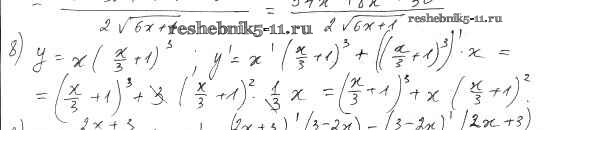 2√(6x+1) = 2√(6x+1)
reshebnik5-11.ru
reshebnik5-11.ru
8) y = x(x/3 + 1)³ ; y' = x'(x/3 + 1)³ + ((x/3 + 1)³)' · x =
= (x/3 + 1)³ + 3(x/3 + 1)² · 1/3 x = (x/3 + 1)³ + x(x/3 + 1)².
2x+3 (2x+3)'(3-2x) - (3-2x)'(2x+3)